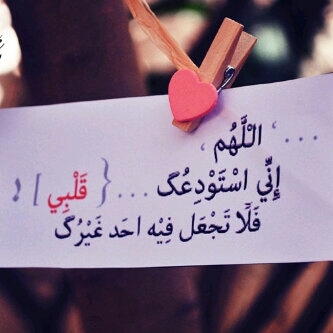 ... ‘ اللَّهُم ‘
إِنِّي اسْتَودِعُكَ ... { قَلْبِي ] !
فَلَا تَجْعَل فِيْه احَد غَيْرُكَ